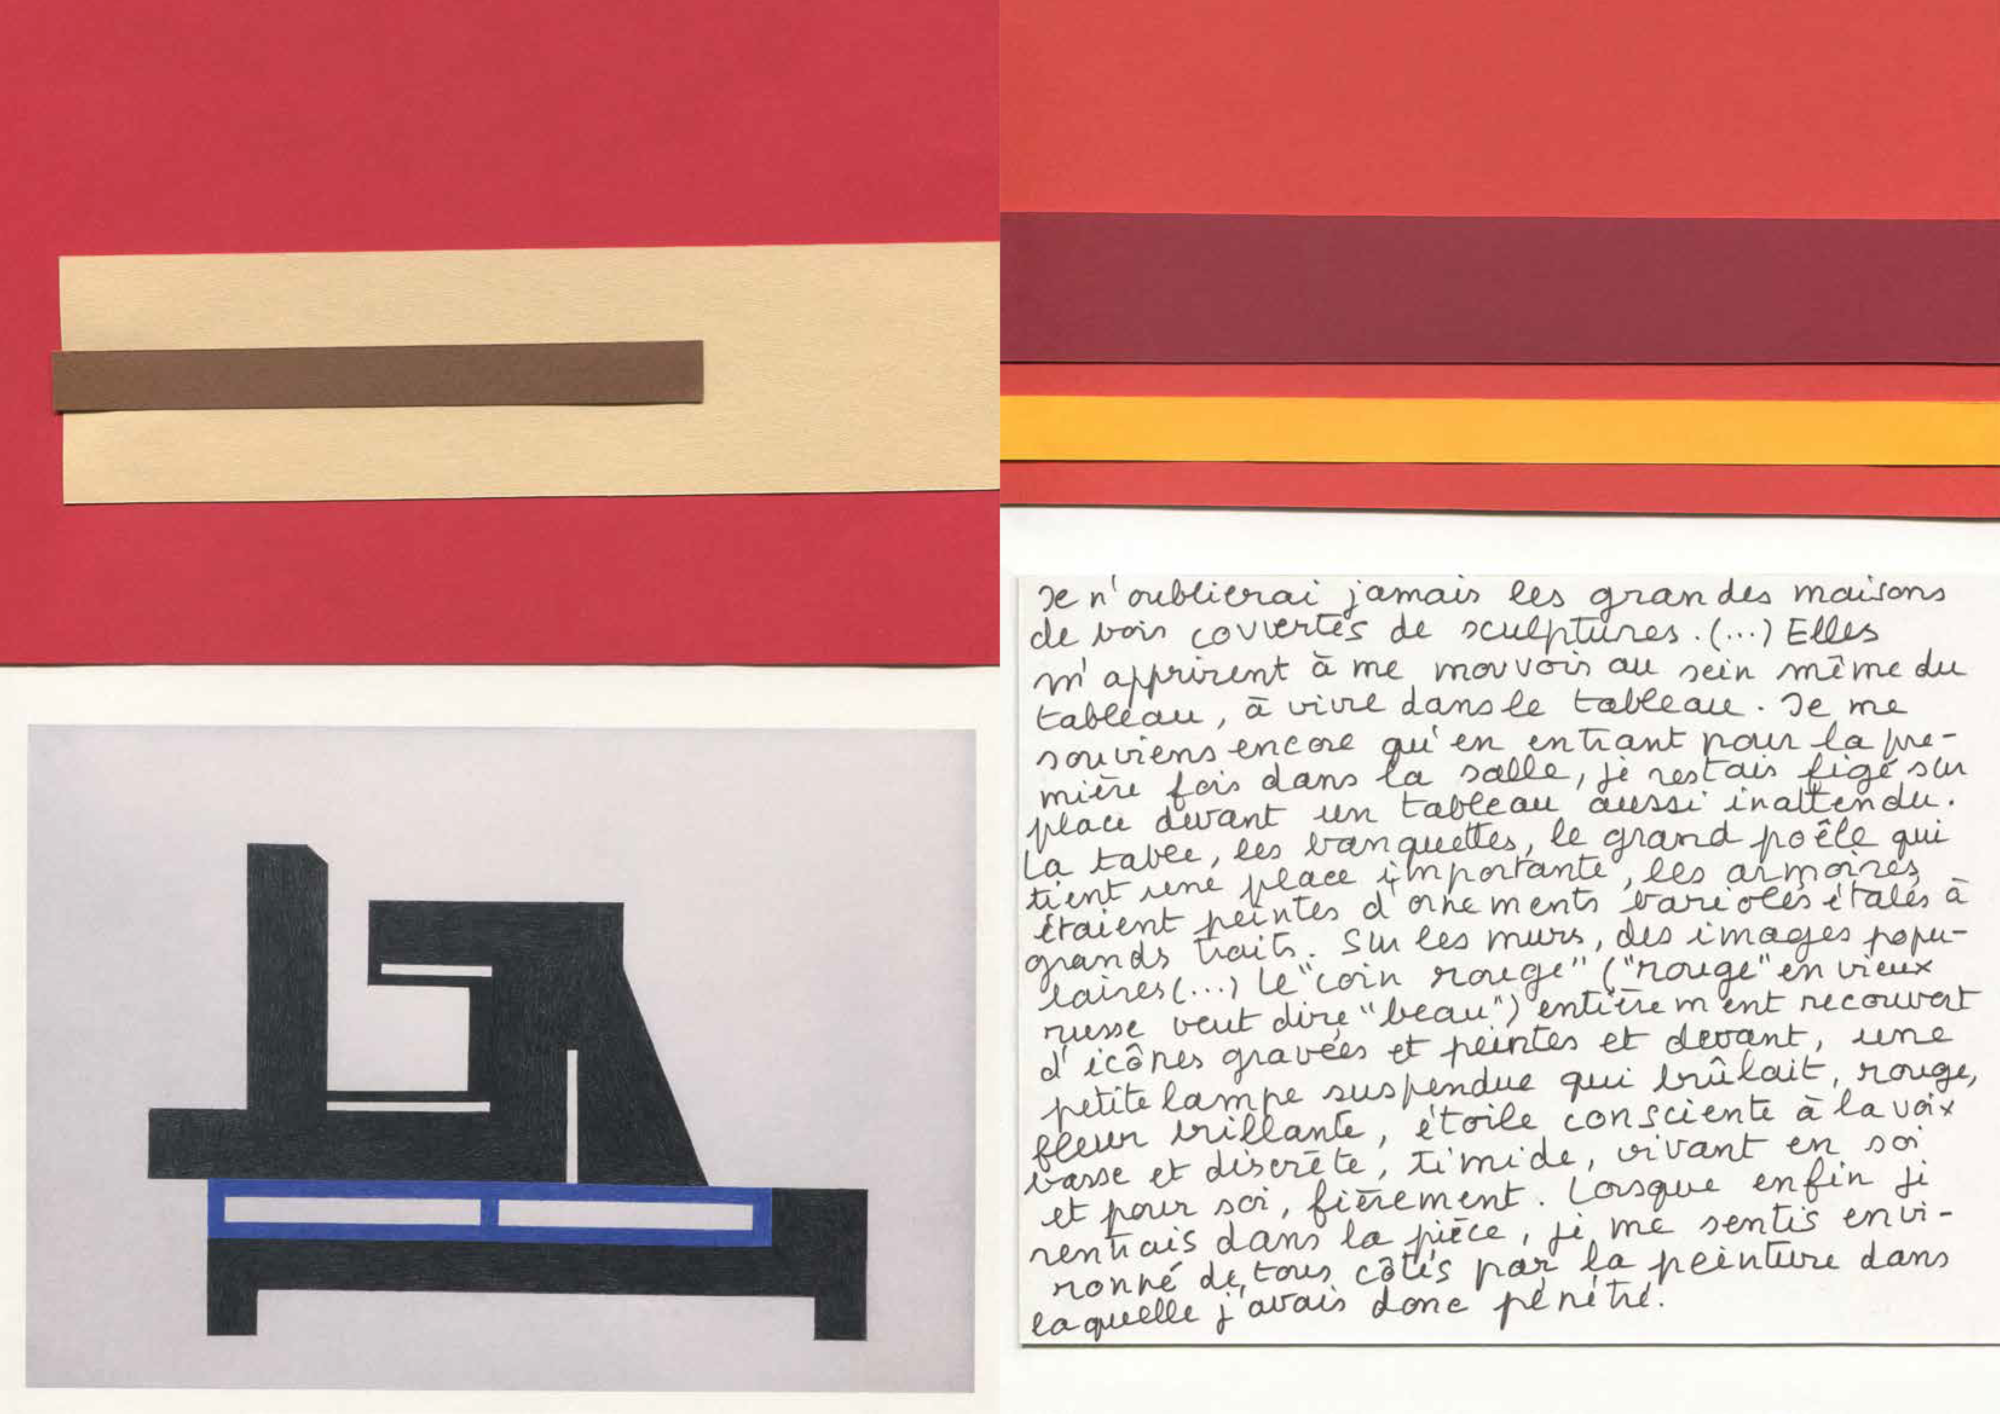 Je n'oublierai jamais les grandes maisons
de bois couvertes de sculptures. (...) Elles
m'apprirent à me mouvoir au sein même du
tableau, à vivre dans le tableau. Je me
souviens encore qu'en entrant pour la pre-
mière fois dans la salle, je restais figé sur
place devant un tableau aussi inattendu.
La table, les banquettes, le grand poêle qui
tient une place importante, les armoires
étaient peintes d'ornements bariolés étalés à
grands traits. Sur les murs, des images popu-
laires (...) Le "coin rouge" ("rouge" en vieux
russe veut dire "beau") entièrement recouvert
d'icônes gravées et peintes et devant, une
petite lampe suspendue qui brûlait, rouge,
fleur brillante, étoile consciente à la voix
basse et discrète, timide, vivant en soi
et pour soi, fièrement. Lorsque enfin je
rentrais dans la pièce, je me sentis envi-
ronné de tous côtés par la peinture dans
laquelle j'avais donc pénétré.